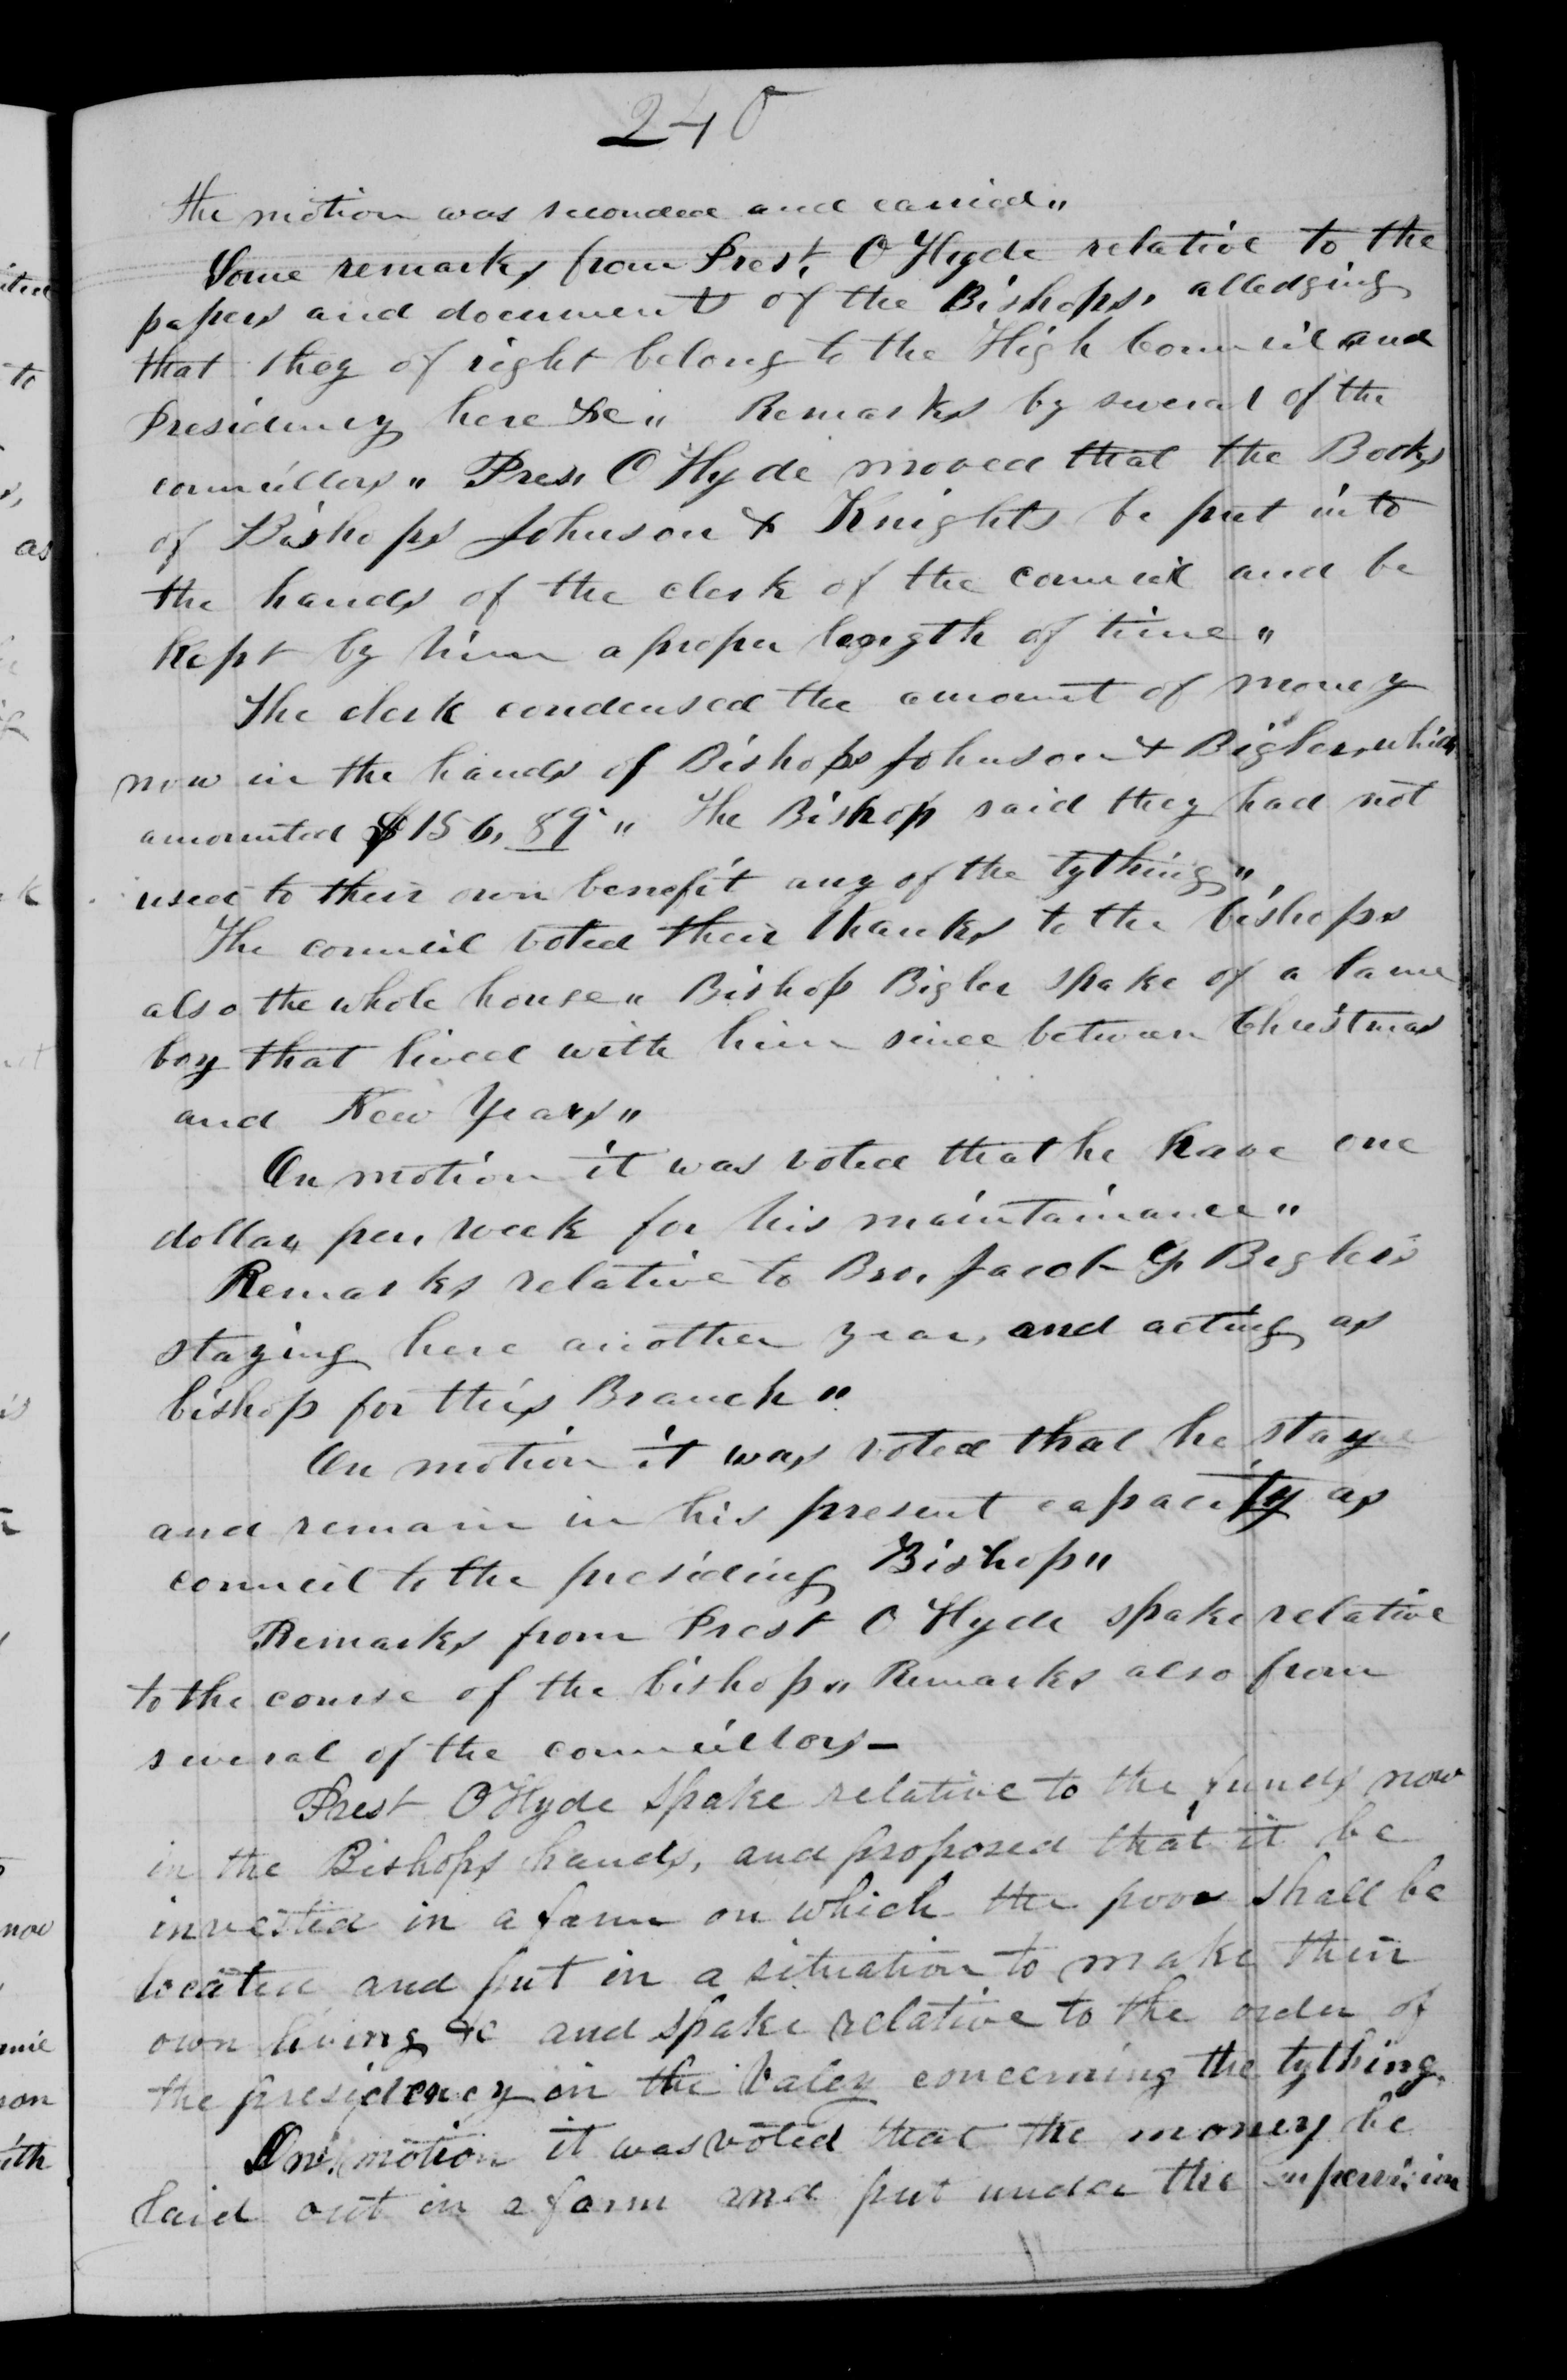 240
the motion was seconded and carried"
Some remarks from Prest. O Hyde relative to the
papers and documents of the Bishops, alledging
that they of right belong to the High Council and
Presidency here &c" Remarks by several of the
councillors" Pres. O Hyde moved that the Books
of Bishops Johnson & Knights be put into
the hands of the clerk of the council and be
kept by him a proper length of time"
The clerk condensed the amount of money
now in the hands of Bishops Johnson & Bigler, which
amounted $156,89" The Bishop said they had not
used to their own benefit any of the tything"
The council voted their thanks to the bishops
also the whole house" Bishop Bigler spake of a lame
boy that lived with him since between Christmas
and New Years"
On motion it was voted that he have one
dollar per, week for his maintainance"
Remarks relative to Bro. Jacob G Bigler's
staying here another year, and acting as
bishop for this Branch"
On motion it was voted that he stay
and remain in his present capacity as
council to the presiding Bishop"
Remarks from Prest O Hyde spake relative
to the course of the bishop" Remarks also from
several of the councillors_
Prest O Hyde spake relative to the funds now
in the Bishops hands, and proposed that it be
invested in a farm on which the poor shall be
located and put in a situation to make their
own living &c and spake relative to the order of
the presidency in the Valey concerning the tything.
On motion it was voted that the money be
laid out in a farm and put under the supervision